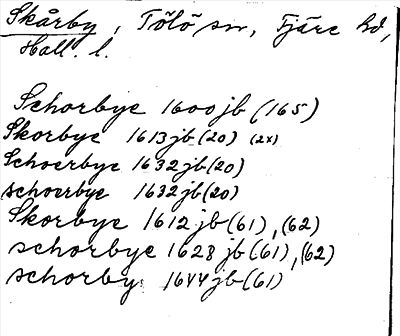 Skårby, Tölö sn, Fjäre hd,
Hall. l.
Schorbye 1600 jb (165)
Skorbye 1613 jb (20) (2x)
Schoerbye 1632 jb (20)
schoerbye 1632 jb (20)
Skorbye 1612 jb (61), (62)
schorbye 1628 jb (61), (62)
schorby 1644 jb (61)